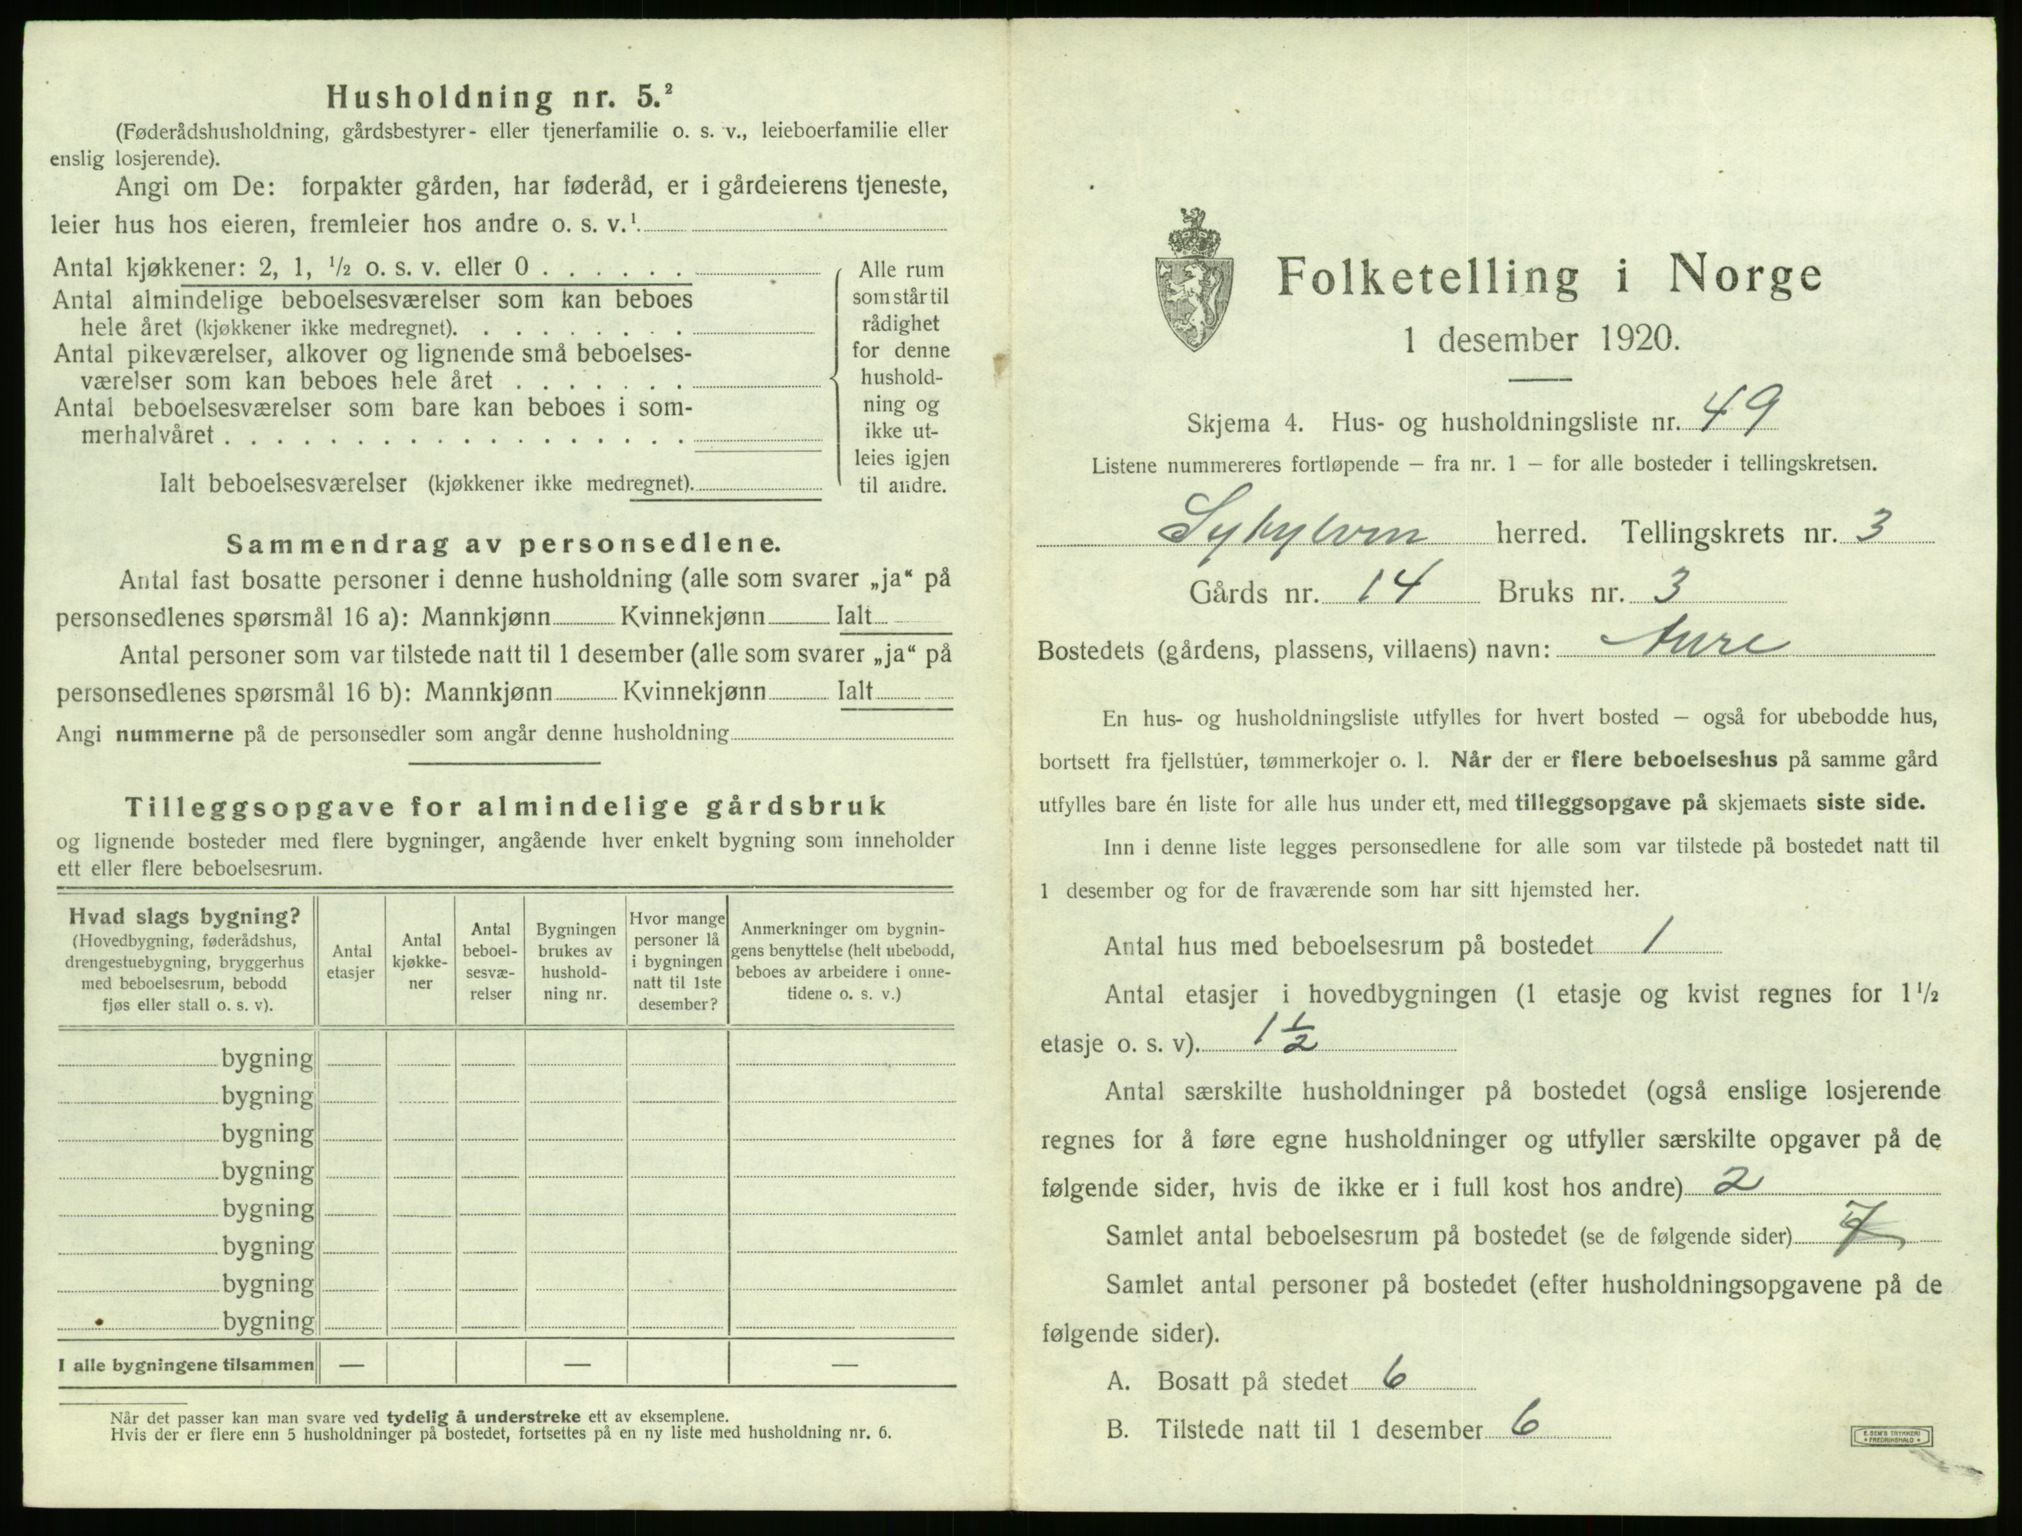 Husholdning nr. 5.²
(Føderådshusholdning, gårdsbestyrer- eller tjenerfamilie o. s. v., leieboerfamilie eller
enslig losjerende).
Angi om De: forpakter gården, har føderåd, er i gårdeierens tjeneste,
leier hus hos eieren, fremleier hos andre o. s. v.¹
Antal kjøkkener: 2, 1, ½ o. s. v. eller 0 . . . . . .
Antal almindelige beboelsesværelser som kan beboes
hele året (kjøkkener ikke medregnet). . . . . . . . .
Antal pikeværelser, alkover og lignende små beboelses-
værelser som kan beboes hele året . . . . . . .
Antal beboelsesværelser som bare kan beboes i som-
merhalvåret . . . . . . . . . . . . . . . . . .
Ialt beboelsesværelser (kjøkkener ikke medregnet).
Alle rum
som står til
rådighet
for denne
hushold-
ning og
ikke ut-
leies igjen
til andre.
Sammendrag av personsedlene.
Antal fast bosatte personer i denne husholdning (alle som svarer „ja“ på
personsedlenes spørsmål 16 a): Mannkjønn Kvinnekjønn Ialt
Antal personer som var tilstede natt til 1 desember (alle som svarer „ja“ på
personsedlenes spørsmål 16 b): Mannkjønn Kvinnekjønn Ialt
Angi nummerne på de personsedler som angår denne husholdning
Tilleggsopgave for almindelige gårdsbruk
og lignende bosteder med flere bygninger, angående hver enkelt bygning som inneholder
ett eller flere beboelsesrum.
Hvad slags bygning?
(Hovedbygning, føderådshus,
drengestuebygning, bryggerhus
med beboelsesrum, bebodd
fjøs eller stall o. s. v).
Antal
etasjer
Antal
kjøkke-
ner
Antal
beboel-
sesvæ-
relser
Bygningen
brukes av
hushold-
ning nr.
Hvor mange
personer lå
i bygningen
natt til 1ste
desember?
Anmerkninger om bygnin-
gens benyttelse (helt ubebodd,
beboes av arbeidere i onne-
tidene o. s. v.)
bygning
bygning
bygning
bygning
bygning
bygning
bygning
bygning
I alle bygningene tilsammen — — —
Når det passer kan man svare ved tydelig å understreke ett av eksemplene.
Hvis der er flere enn 5 husholdninger på bostedet, fortsettes på en ny liste med husholdning nr. 6.
Folketelling i Norge
1 desember 1920.
Skjema 4. Hus- og husholdningsliste nr. 49
Listene nummereres fortløpende – fra nr. 1 – for alle bosteder i tellingskretsen.
Sykylven herred. Tellingskrets nr. 3
Gårds nr. 14 Bruks nr. 3
Bostedets (gårdens, plassens, villaens) navn: Aure
En hus- og husholdningsliste utfylles for hvert bosted – også for ubebodde hus,
bortsett fra fjellstuer, tømmerkojer o. l. Når der er flere beboelseshus på samme gård
utfylles bare én liste for alle hus under ett, med tilleggsopgave på skjemaets siste side.
Inn i denne liste legges personsedlene for alle som var tilstede på bostedet natt til
1 desember og for de fraværende som har sitt hjemsted her.
Antal hus med beboelsesrum på bostedet 1
Antal etasjer i hovedbygningen (1 etasje og kvist regnes for 1½
etasje o. s. v). 1½
Antal særskilte husholdninger på bostedet (også enslige losjerende
regnes for å føre egne husholdninger og utfyller særskilte opgaver på de
følgende sider, hvis de ikke er i full kost hos andre) 2
Samlet antal beboelsesrum på bostedet (se de følgende sider) 7
Samlet antal personer på bostedet (efter husholdningsopgavene på de
følgende sider).
A. Bosatt på stedet 6
B. Tilstede natt til 1 desember 6
E. SEM'S TRYKKERI
FREDRIKSHALD